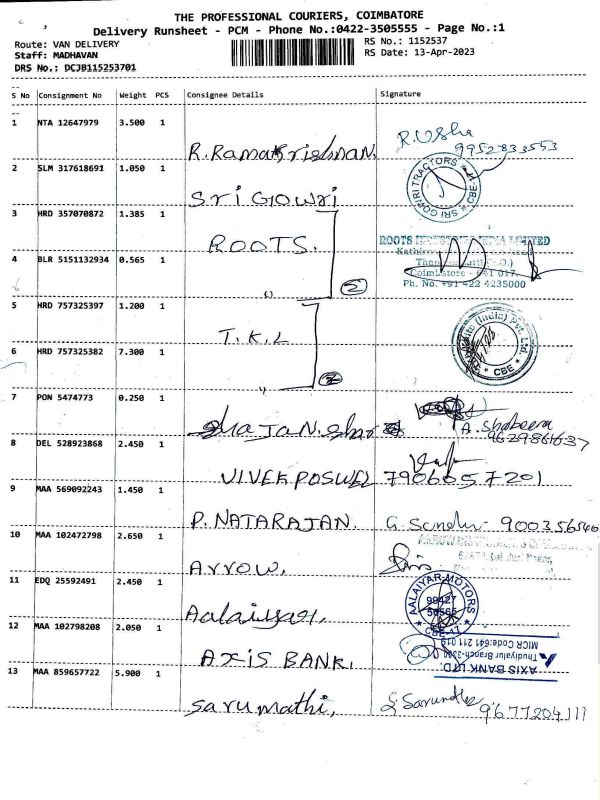 THE PROFESSIONAL COURIERS, COIMBATORE
Delivery Runsheet - PCM - Phone No.:0422-3505555 - Page No.:1
Route: VAN DELIVERY
RS No.: 1152537
Staff: MADHAVAN
RS Date: 13-Apr-2023
DRS No.: DCJB115253701
S No Consignment No Weight PCS Consignee Details Signature
1 NTA 12647979 3.500 1
R. Ramakrishnan. R. Usha
9952833553
2 SLM 317618691 1.050 1
Sri Gowri SRI GOWRI TRACTORS * CBE *
3 HRD 357070872 1.385 1
ROOTS. ROOTS LIMITED
4 BLR 5151132934 0.565 1
Coimbatore - 641 017
2 Ph. No. +91 422 4235000
5 HRD 757325397 1.200 1
T.K.L (India) Pvt. Ltd.
* CBE *
6 HRD 757325382 7.300 1
2
7 PON 5474773 0.250 1
A. Shabeera
9629861637
8 DEL 528923868 2.450 1
VIVEK 7906057201
9 MAA 569092243 1.450 1
P. NATARAJAN. 900356540
10 MAA 102472798 2.650 1
Arrow.
11 EDQ 25592491 2.450 1
Aalaiyar, AALAIYAR MOTORS
12 MAA 102798208 2.050 1
AXIS BANK. AXIS BANK LTD.
Thudiyalur Branch-3300
MICR Code:641 211 019
13 MAA 859657722 5.900 1
Sarumathi, 9677204111